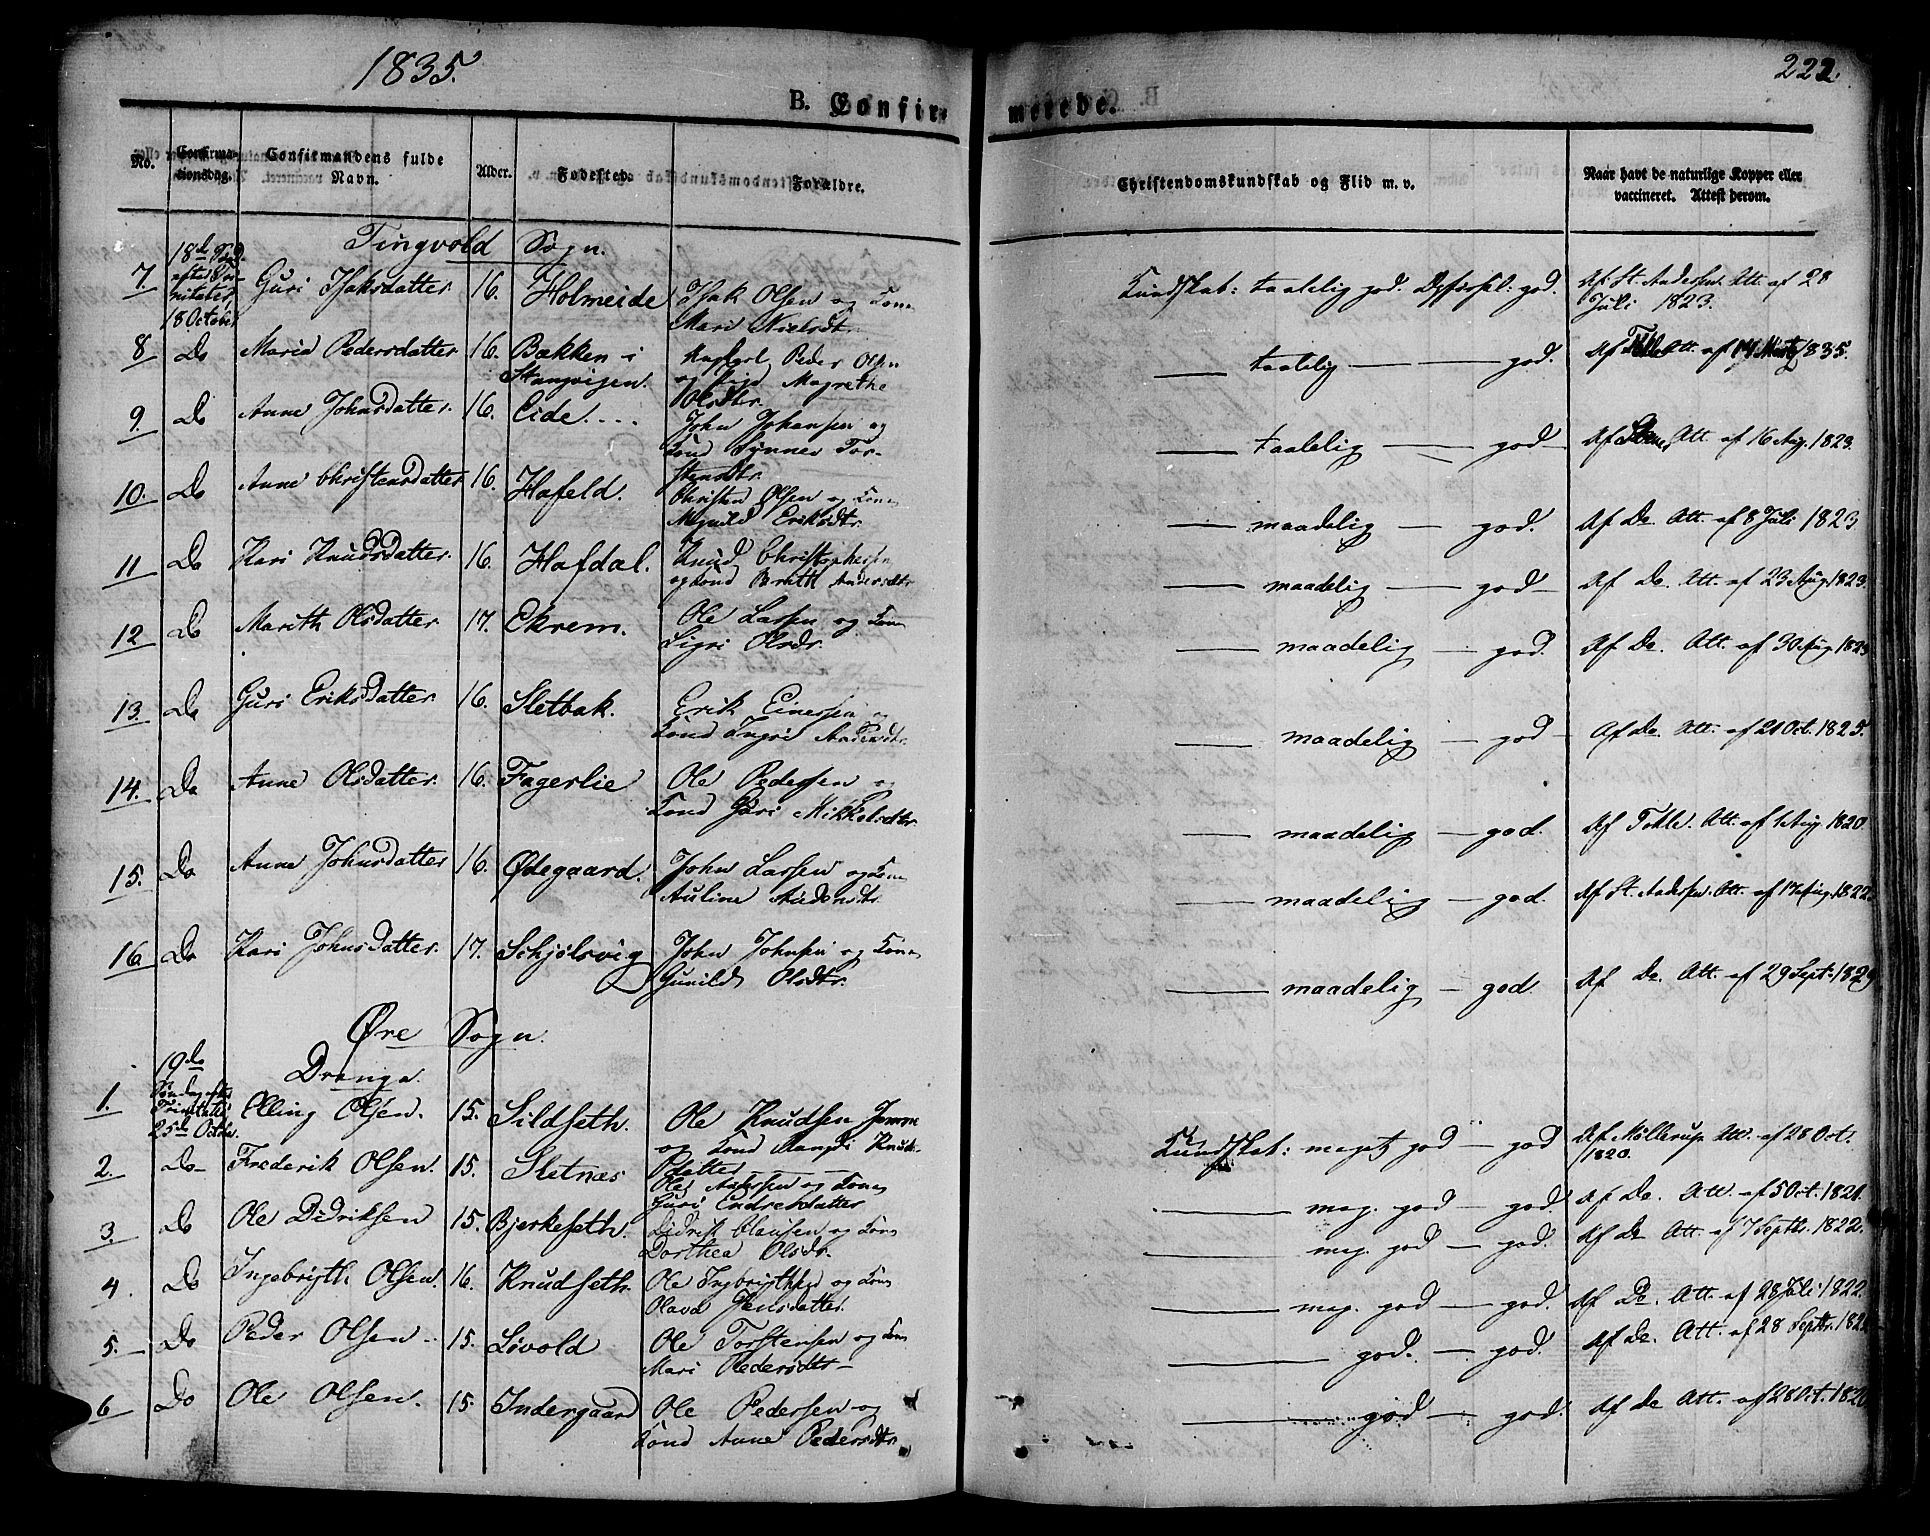 1835.
222.
B. Confirmerede.
No.
Confirmationsdag.
Confirmandens fulde Navn.
Alder.
Fødested.
Forældre.
Christendomskundskab og Flid m. v.
Naar havt de naturlige Kopper eller vaccineret. Attest derom.
Tingvold Sogn.
7. 18de efter Trinitates, 18 October Guri Isaksdatter 16. Holmeide Isak Olsen og Kone Mari Nielsdtr. Kundskab: taalelig god. Opførsel: god. Af St. Andersen Att. af 28 Juli 1823.
8 Do Maria Pedersdatter 16. Bakken i Stangvigen. Peder Olsen og Pige Magrethe Olsdtr. — taalelig — god. Af Att. af 14 Martz 1835.
9. Do Anne Johnsdatter. 16. Eide.... John Johansen og Kone Synnev Torstensdtr. — taalelig — god — Af Att. af 16 Aug. 1823.
10. Do Anne Christensdatter 16. Hafeld. Christen Olsen og Kone Magnild Eriksdtr. — maadelig — god. Af Do. Att. af 8 Juli 1823
11 Do Kari Knudsdatter. 16. Hafdal. Knud Christophersen og Kone Brith Andersdtr — maadelig — god — Af Do. Att. af 23 Aug 1823.
12 Do Marith Olsdatter 17. Ekrem. Ole Larsen og Kone Sigri Olsdr. — maadelig — god. Af Do. Att. af 30 Aug 1823
13. Do Guri Eriksdatter. 16. Sletbak. Erik Einersen og Kone Ingri Andersdtr. — maadelig — god — Af Do. Att. af 21 Oct. 1825.
14. Do Anne Olsdatter. 16. Fagerlie Ole Pedersen og Kone Guri Mikkelsdtr. — maadelig — god. Af Tokle. Att. af 1 Aug. 1820.
15. Do Anne Johnsdatter 16. Ødegaard. John Larsen og Kone Auline Andersdtr. — maadelig — god. Af St. Andersen. Att. af 17 Aug. 1822.
16. Do Kari Johnsdatter. 17. Schjølsvig John Johnsen og Kone Gunild Olsdtr. — maadelig — god. Af Do. Att. af 29 Sept. 1829
Øre Sogn.
Drenge.
1. 19de Søndag efter Trinitatis 25de October. Elling Olsen. 15. Sildseth. Ole Knudsen og Kone Randi Knudsdatter Kundskab: meget god — god Af Møllerup Att. af 28 Oct. 1820.
2. Do Frederik Olsen. 15. Sletnæs Ole Andersen og Kone Guri Endresdatter — meg. god — god. Af Do. Att. af 5 Oct. 1821.
3. Do Ole Didriksen 15. Bjerkeseth. Didrik Clausen og Kone Dorthea Olsdr. — meg. god — god. Af Do Att. af 7 Septbr. 1822.
4. Do Ingebrigth Olsen. 16. Knudseth. Ole Ingbrigthsen og Kone Olava Jensdatter. — meg. god — god. Af Do. Att. af 28 Juli 1822.
5. Do Peder Olsen 15. Løvold Ole Torstensen og Kone Mari Pedersdtr — god. — god. Af Do. Att. af 28 Septbr. 182
6 Do Ole Olsen. 15. Indergaard Ole Pedersen og Kone Anne Pedersdtr. — god — god. Af Do Att. af 28 Oct. 1820